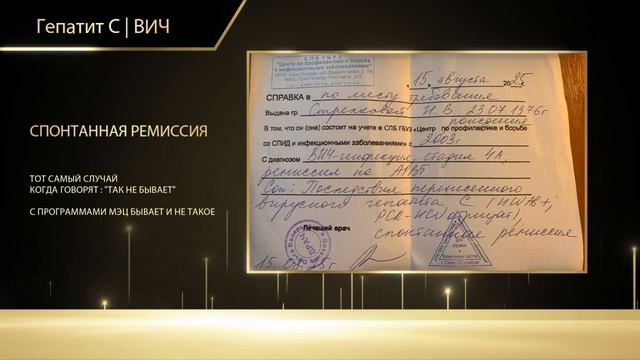 Гепатит С | ВИЧ
СПОНТАННАЯ РЕМИССИЯ
ТОТ САМЫЙ СЛУЧАЙ
КОГДА ГОВОРЯТ : "ТАК НЕ БЫВАЕТ"
С ПРОГРАММАМИ МЭЦ БЫВАЕТ И НЕ ТАКОЕ
СПб ГБУЗ
"Центр по профилактике и борьбе
с инфекционными заболеваниями"
15 августа 2025г.
СПРАВКА в по месту требования
Выдана гр. Стрелковой Н. В 23.07.1976г
В том, что он (она) состоит на учете в СПБ ГБУЗ «Центр по профилактике и борьбе
со СПИД и инфекционными заболеваниями» с 2003г
С диагнозом ВИЧ-инфекция, стадия 4А,
ремиссия на АРВТ
Соп: Последствия перенесенного
вирусного гепатита С (HCVAB+,
PCR-HCV отрицат),
спонтанная ремиссия
Лечащий врач
ВРАЧ